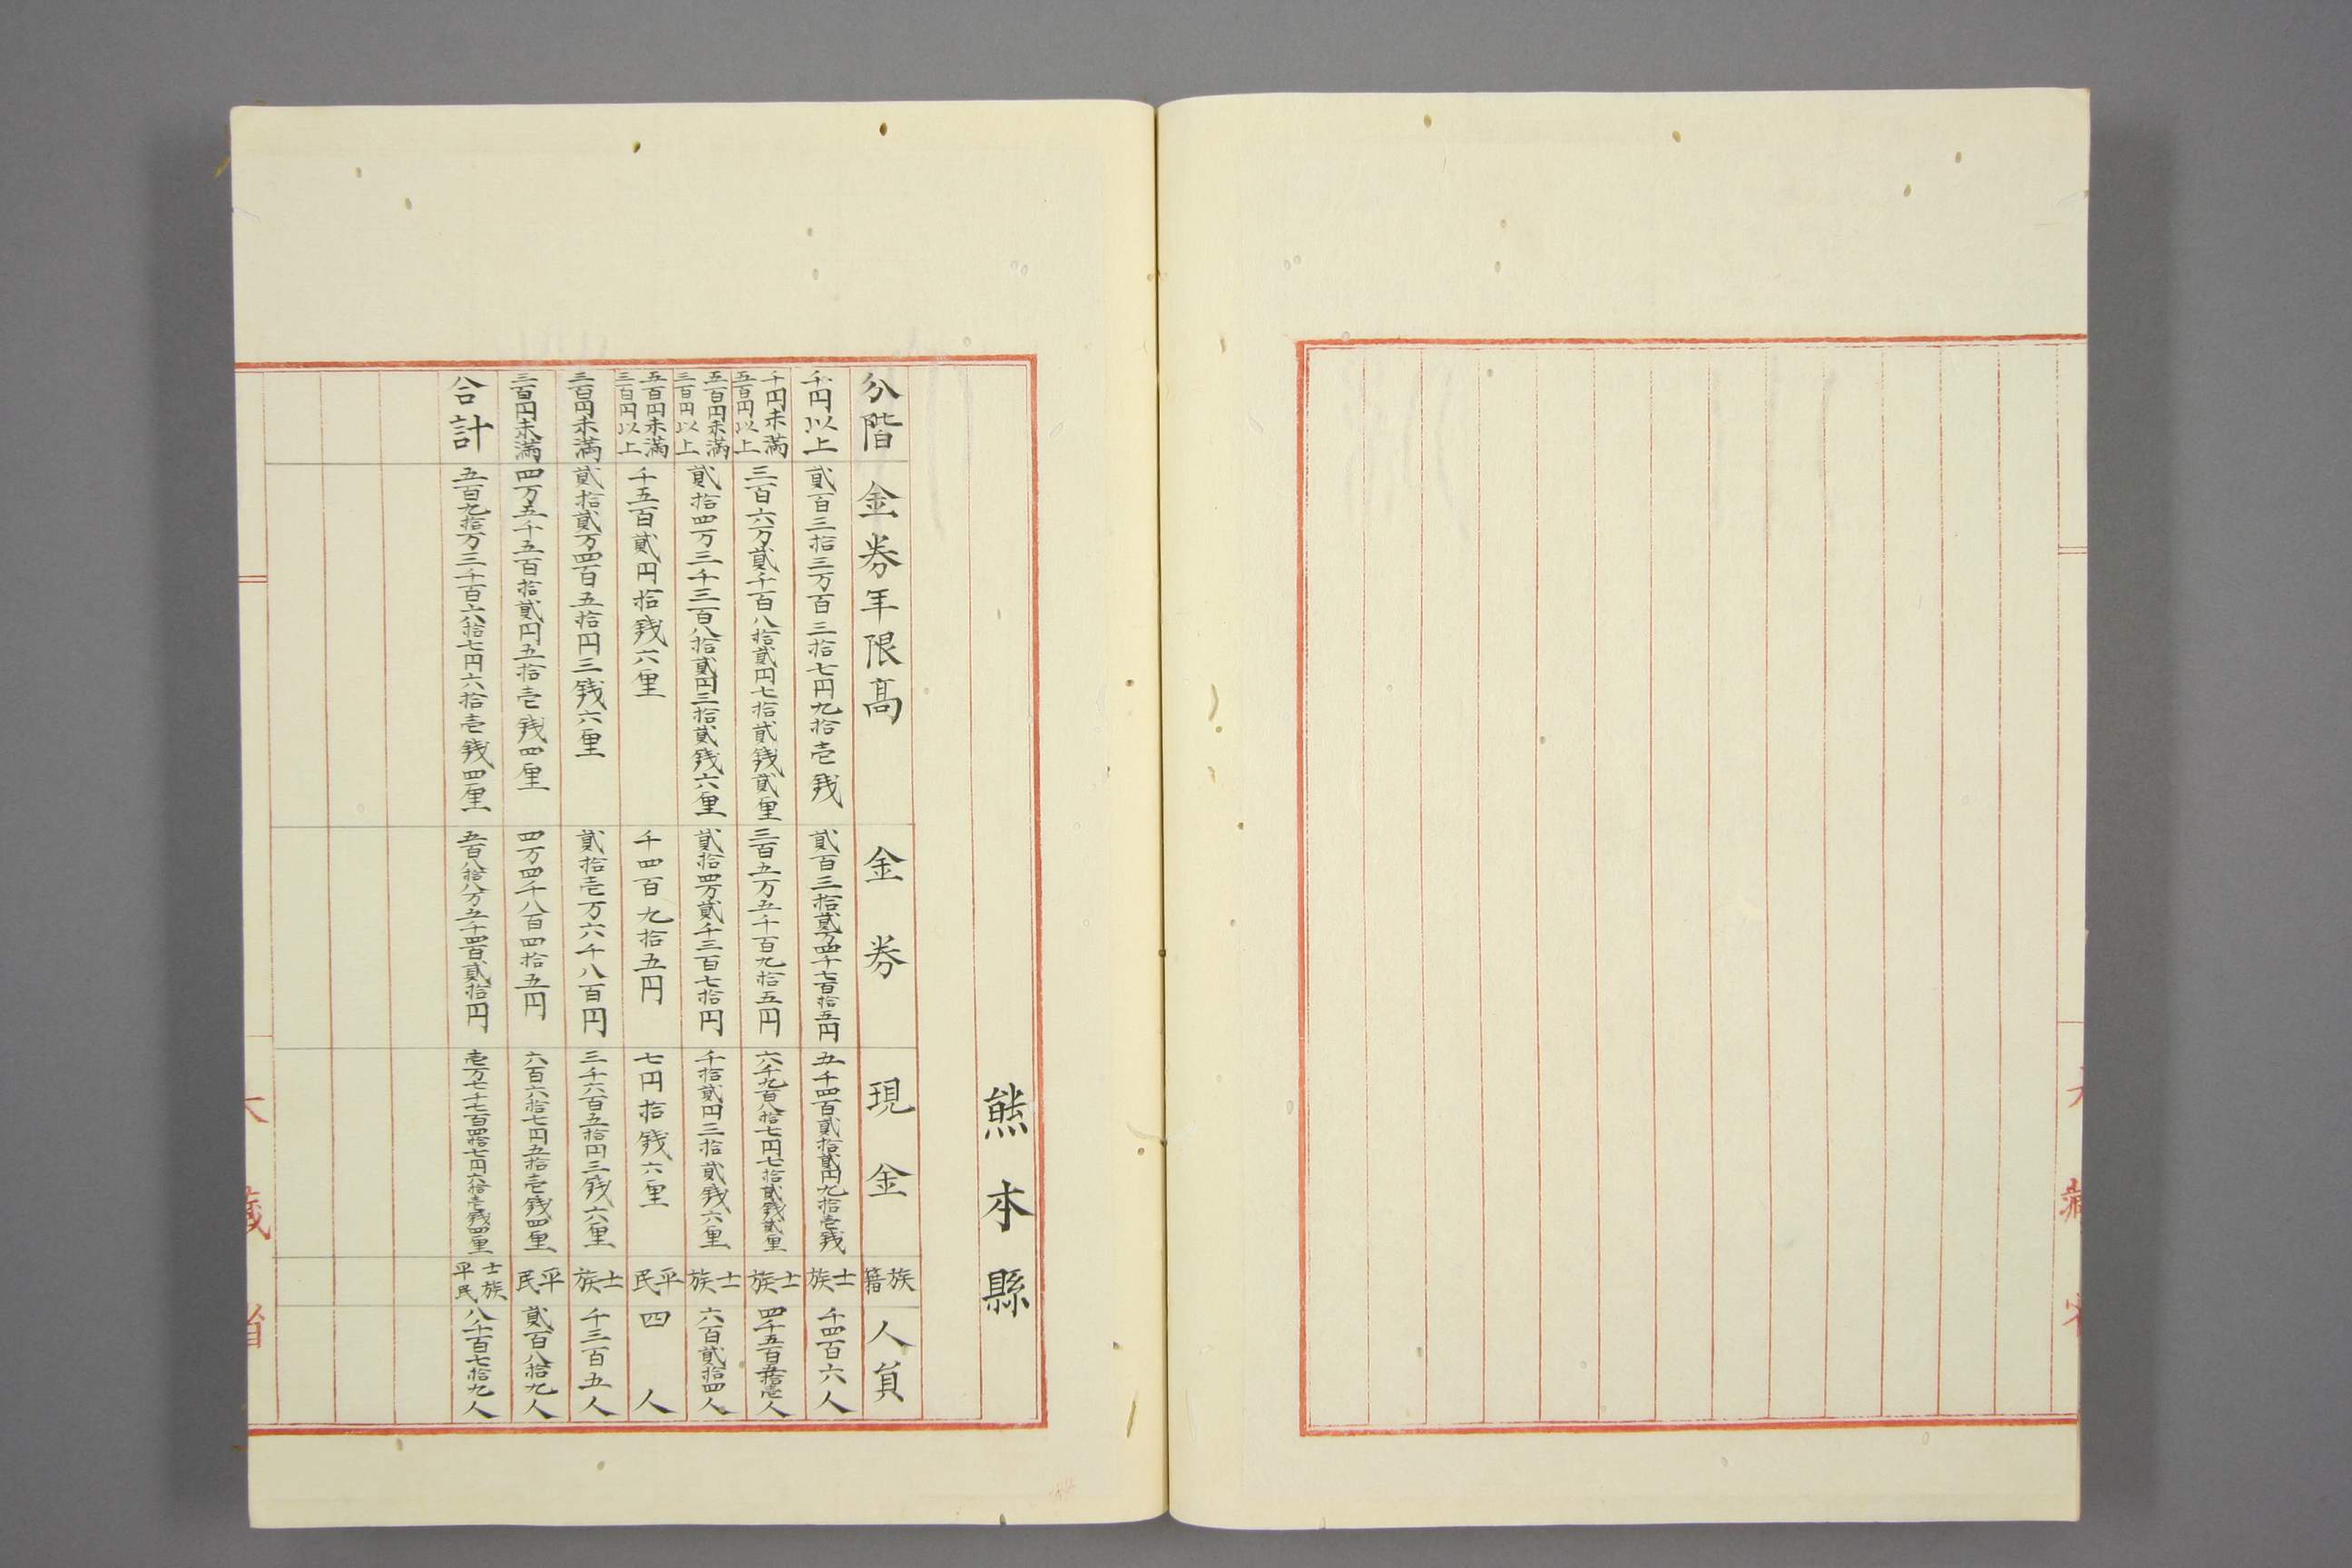 熊本縣
分階 金券年限高 金券 現金 族籍 人員
千円以上 貳百三拾三万百三拾七円九拾壱銭 貳百三拾貳万四千七百拾五円 五千四百貳拾貳円九拾壱銭 士族 千四百六人
千円未満五百円以上 三百六万貳千百八拾貳円七拾貳銭貳厘 三百五万五千百九拾五円 六千九百八拾七円七拾貳銭貳厘 士族 四千五百五拾壱人
五百円未満三百円以上 貳拾四万三千三百八拾貳円三拾貳銭六厘 貳拾四万貳千三百七拾円 千拾貳円三拾貳銭六厘 士族 六百貳拾四人
五百円未満三百円以上 千五百貳円拾銭六厘 千四百九拾五円 七円拾銭六厘 平民 四人
三百円未満 貳拾貳万四百五拾円三銭六厘 貳拾壱万六千八百円 三千六百五拾円三銭六厘 士族 千三百五人
三百円未満 四万五千五百拾貳円五拾壱銭四厘 四万四千八百四拾五円 六百六拾七円五拾壱銭四厘 平民 貳百八拾九人
合計 五百九拾万三千百六拾七円六拾壱銭四厘 五百八拾八万五千四百貳拾円 壱万七千七百四拾七円六拾壱銭四厘 士族平民 八千百七拾九人
大藏省